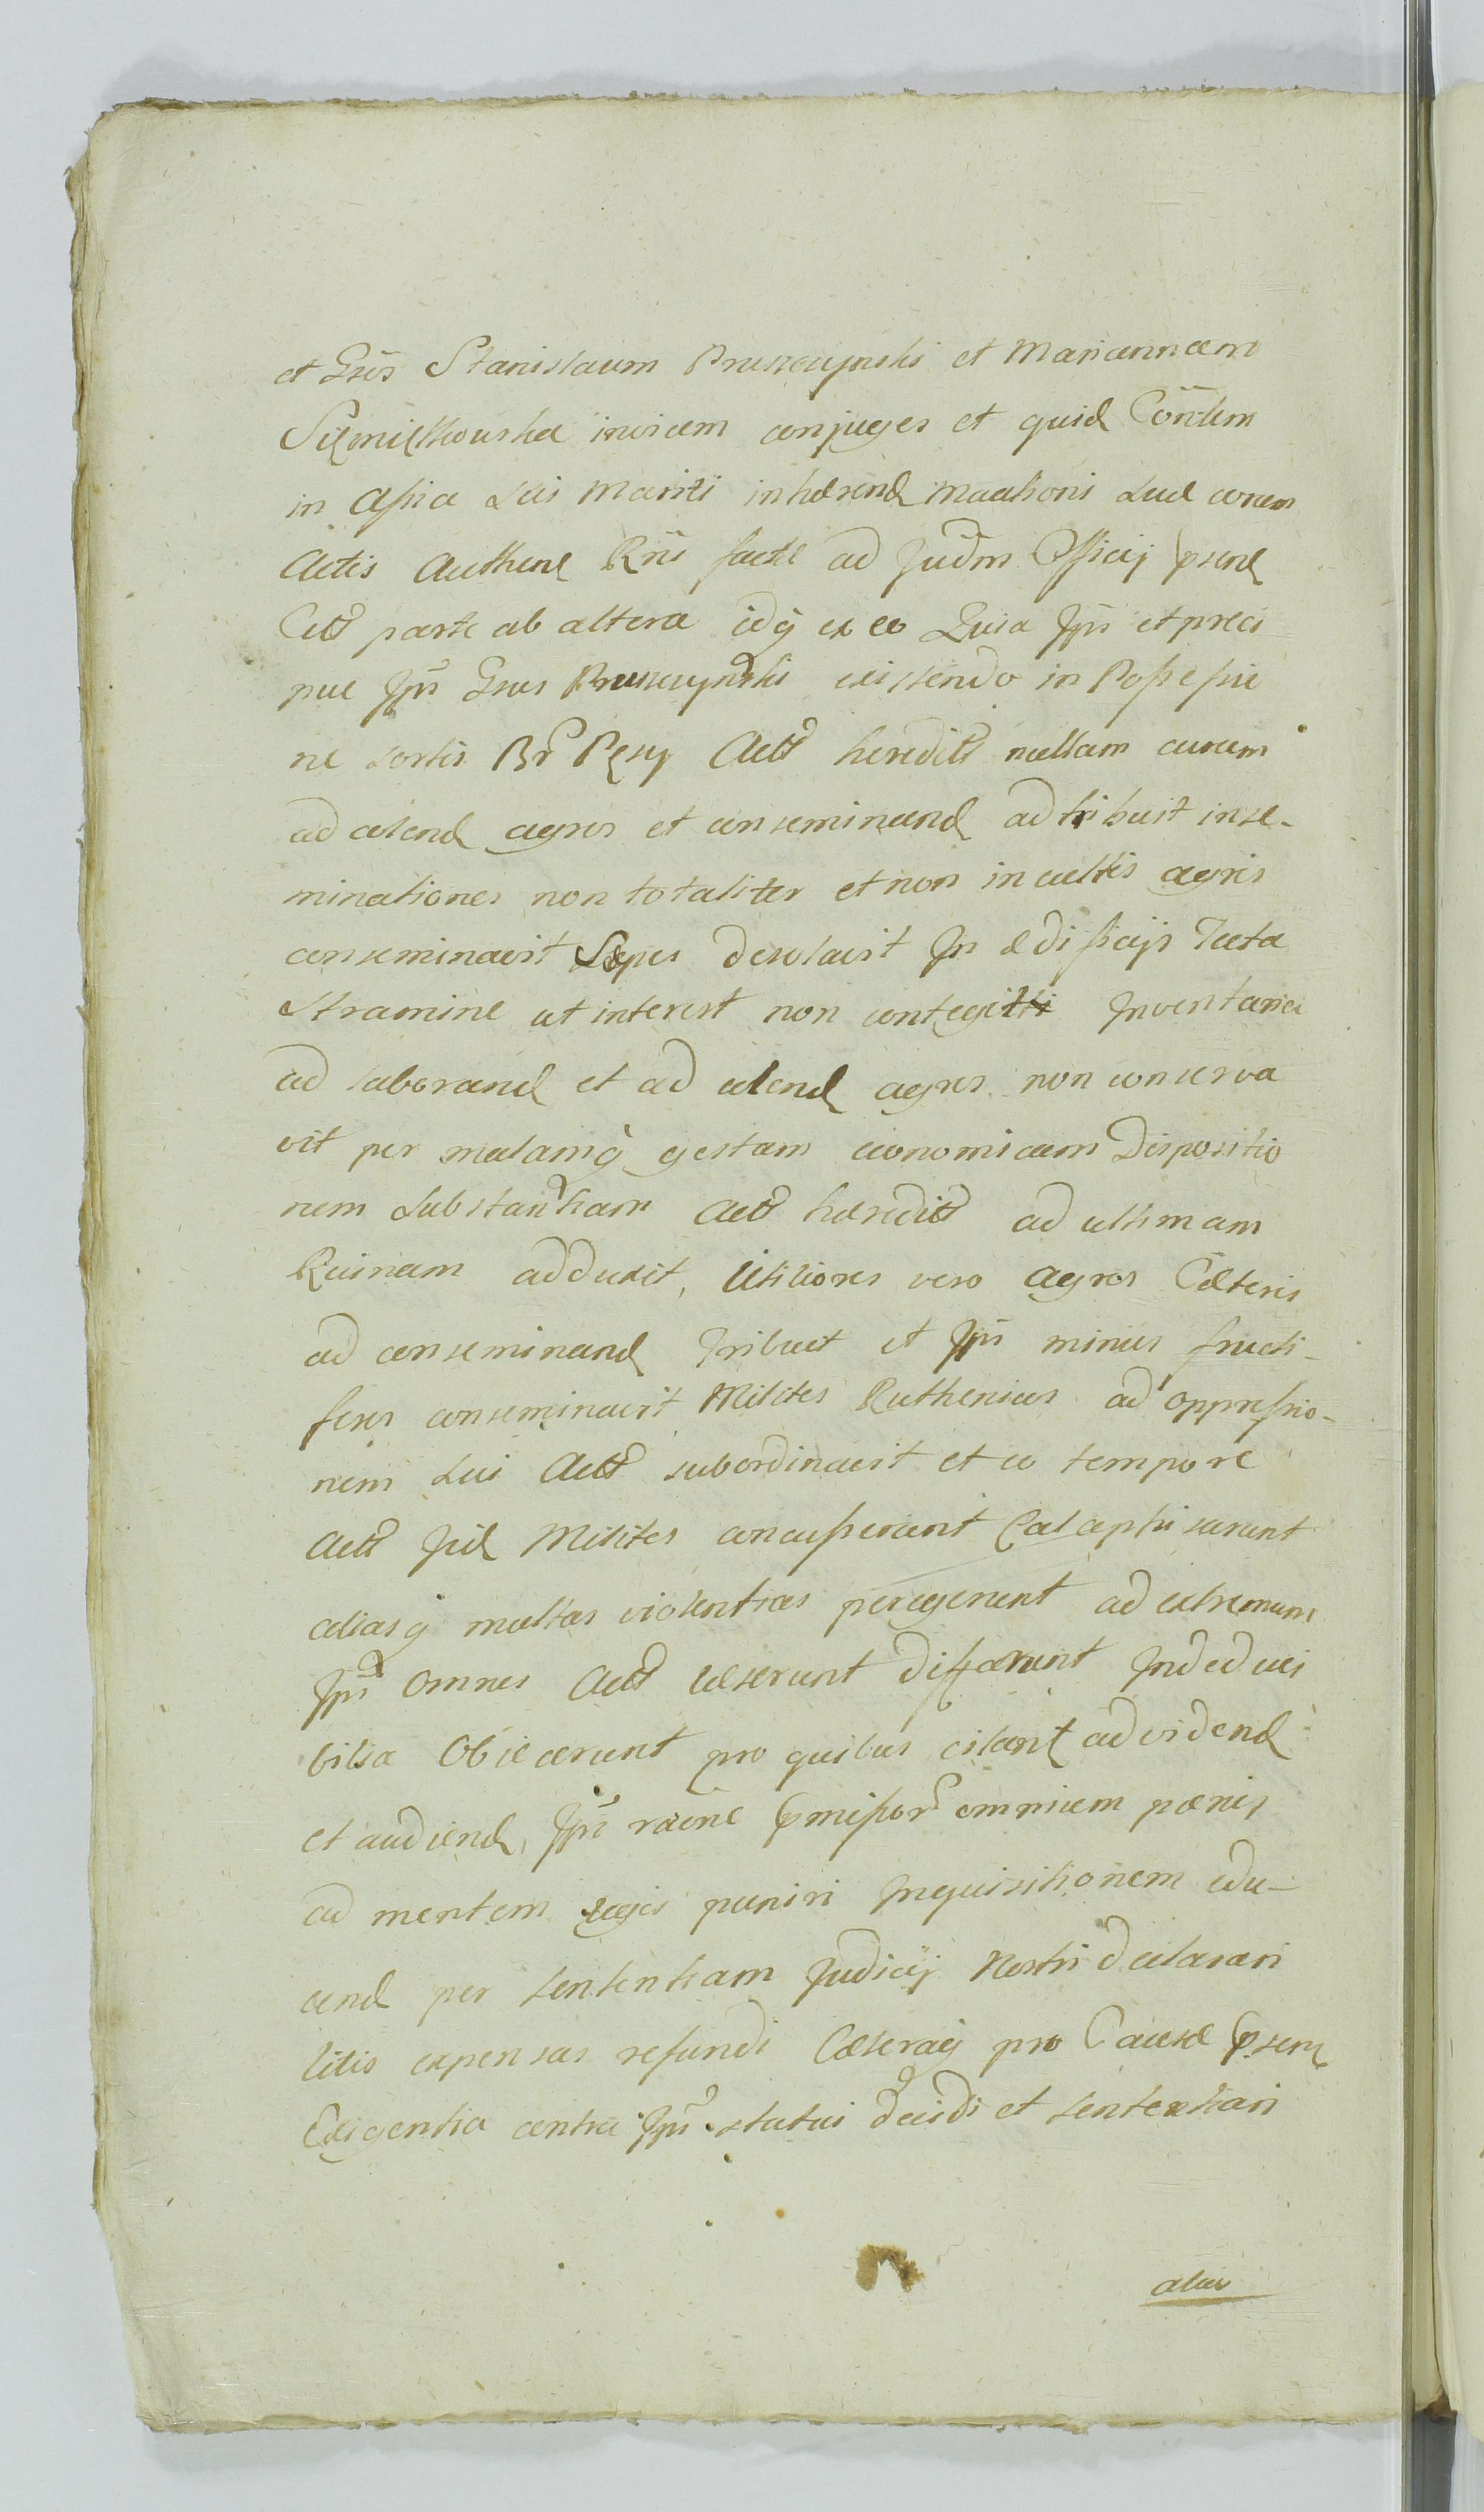 et Gūs Stanislaum Pruszczynski et Mariannam
invicem conjuges et quid Contem
in Assia Sui Mariti inhærend Motioni Suæ coram
Actis Authent Rñi factæ ad Judm Officij psend
Actt parte ab altera idq ex eo Quia Jpī et præci
pue Jpī Gsus Pruszczynski existendo in Possessio
ne sortis Br Actt heredit nullam curam
ad colend agros et conseminand adtribuit inse-
minationes non totaliter et non in cultis agris
conseminavit Sepes desolavit In ædificijs Tecta
Stramine ut interest non contegit Inventaria
ad laborand et ad colend agros non conserva
vit per malamq gestam œconomicam Dispositio
nem Substantiam Actt hæredit ad ultimam
Ruinam adduxit, Utiliores vero agros Cæteris
ad conseminand tribuit et Jpī minus fructi-
feros conseminavit Milites Ruthenicos ad oppressio-
nem Sui Actt subordinavit et eo tempore
Actt Jid Milites concusserunt Colaphisarunt
aliasq multas violentias peregerunt ad extremum
Jpī omnes Actt læserunt diffamarunt Indedeci
bilia Objecerunt pro quibus citant ad vidend
et audiend, Jpī raõne pmissor omnium pænis
ad mentem legis puniri Inquisitionem edu-
cend per sententiam Judicij Nostri declarari
litis expensas refundi Cæteraq pro Causæ psen
Exigentia contra Jpī statui decidi et sententiari
alias